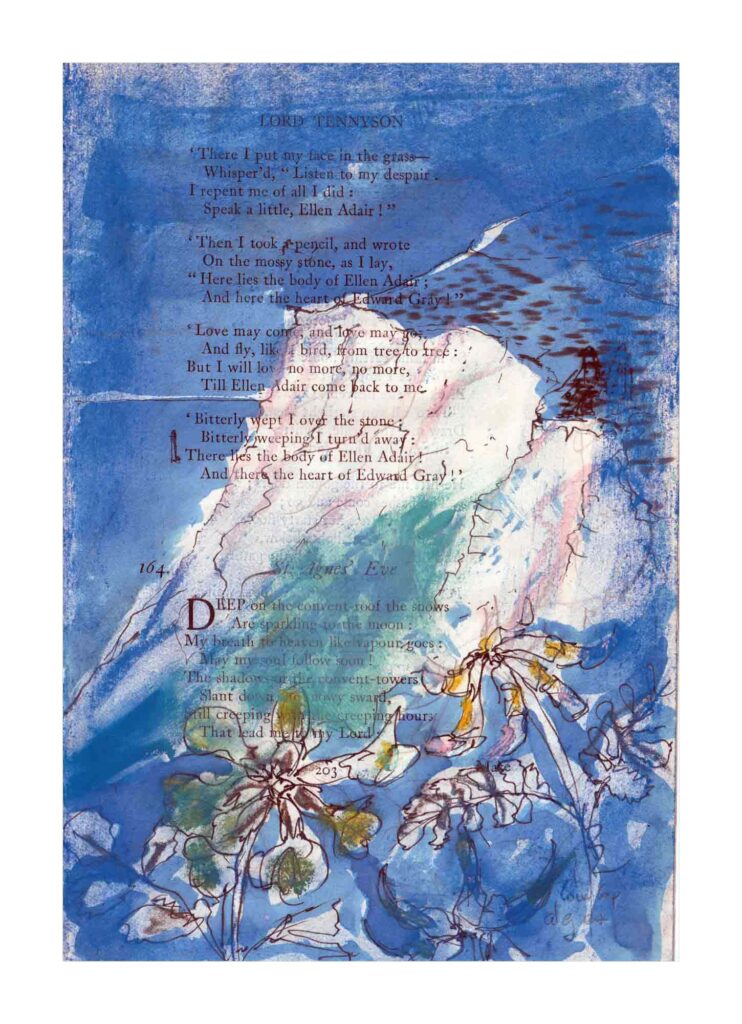 LORD TENNYSON
‘There I put my face in the grass—
Whisper’d, “Listen to my despair :
I repent me of all I did :
Speak a little, Ellen Adair !”
‘Then I took a pencil, and wrote
On the mossy stone, as I lay,
“Here lies the body of Ellen Adair ;
And here the heart of Edward Gray !”
‘Love may come, and love may go,
And fly, like a bird, from tree to tree :
But I will love no more, no more,
Till Ellen Adair come back to me.
‘Bitterly wept I over the stone :
Bitterly weeping I turn’d away :
There lies the body of Ellen Adair !
And there the heart of Edward Gray !’
164. St. Agnes’ Eve
DEEP on the convent-roof the snows
Are sparkling to the moon :
My breath to heaven like vapour goes :
May my soul follow soon !
The shadows of the convent-towers
Slant down the snowy sward,
Still creeping with the creeping hours
That lead me to my Lord :
203